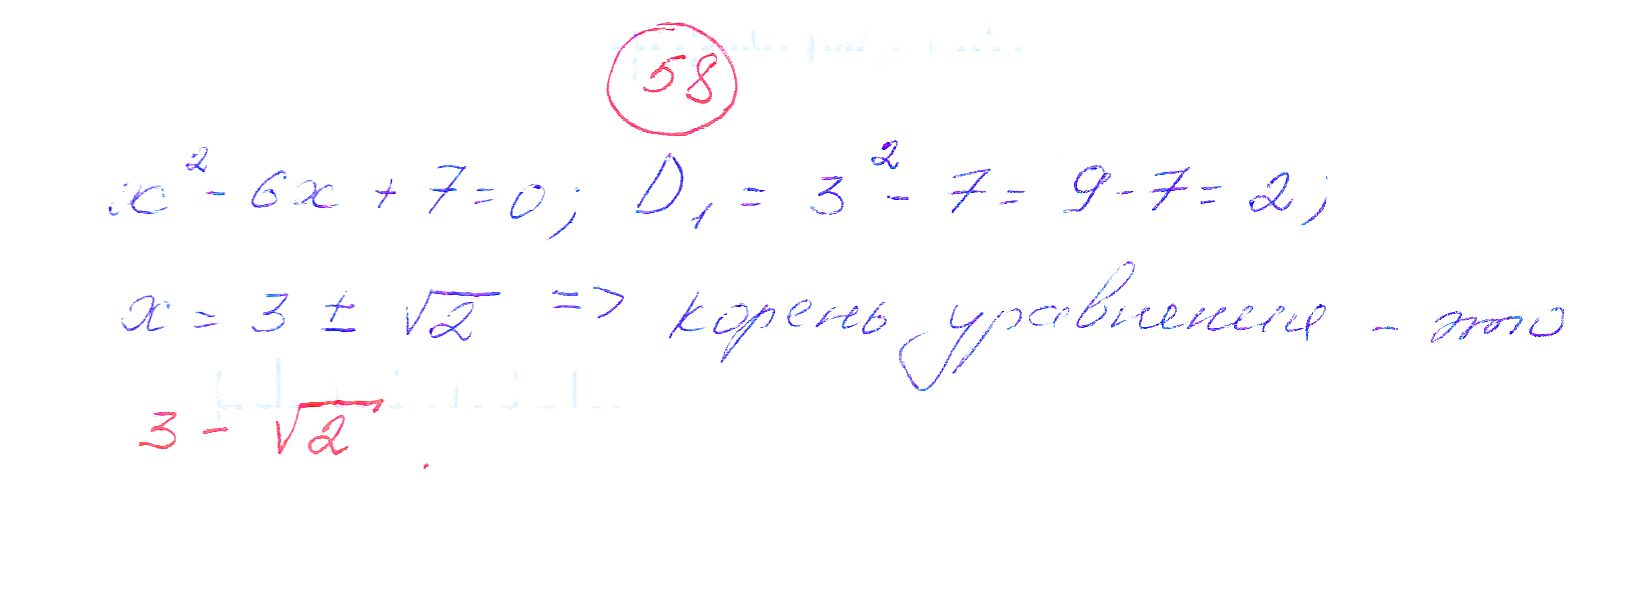 58
x² - 6x + 7 = 0; D₁ = 3² - 7 = 9 - 7 = 2;
x = 3 ± √2 => корень уравнения - это
3 - √2.